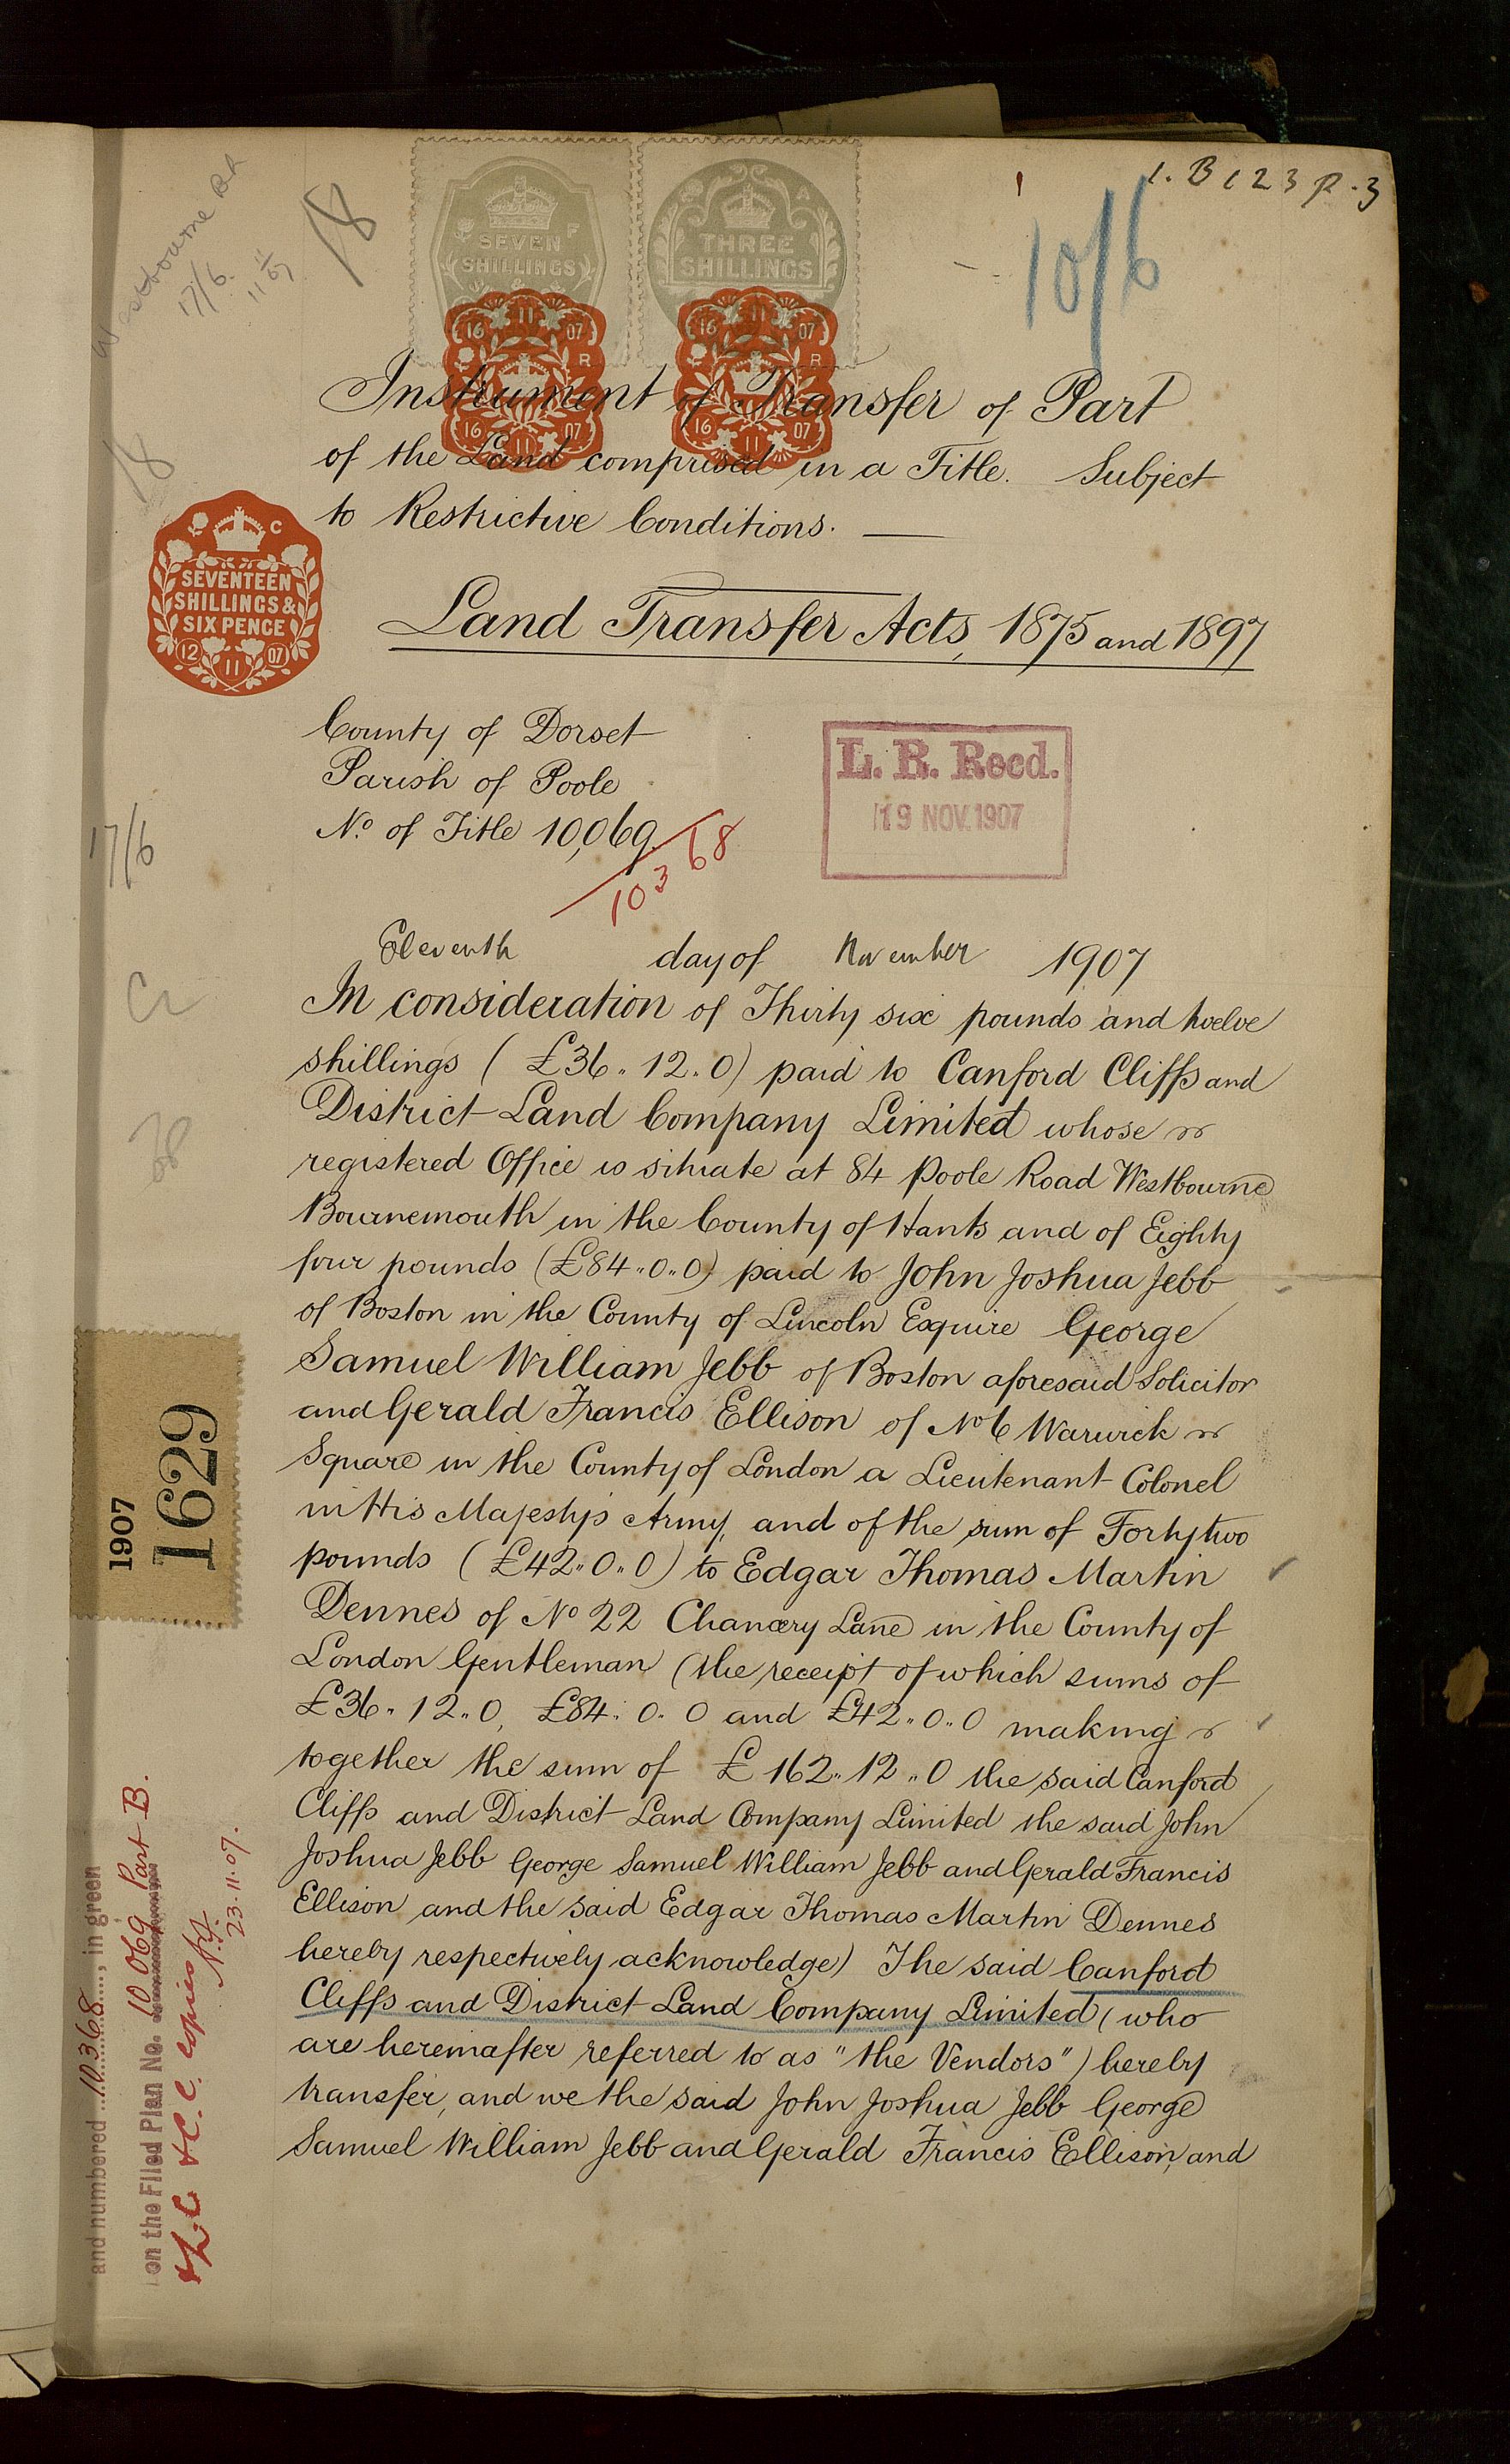 1. B C 23 P. 3
10/6
Westbourne Bh
17/6
11/11/07
18
18
SEVEN
SHILLINGS
THREE
SHILLINGS
16 11 07
R
16 11 07
16 11 07
R
16 11 07
Instrument of Transfer of Part
of the Land comprised in a Title. Subject
to Restrictive Conditions.
C
SEVENTEEN
SHILLINGS &
SIX PENCE
12 11 07
Land Transfer Acts, 1875 and 1897
County of Dorset
Parish of Poole
No. of Title 10,069
10368
L. R. Recd.
19 NOV. 1907
17/6
Eleventh day of November 1907
In consideration of Thirty six pounds and twelve
shillings (£36.12.0) paid to Canford Cliffs and
District Land Company Limited whose
registered Office is situate at 84 Poole Road Westbourne
Bournemouth in the County of Hants and of Eighty
four pounds (£84..0..0) paid to John Joshua Jebb
of Boston in the County of Lincoln Esquire George
Samuel William Jebb of Boston aforesaid Solicitor
and Gerald Francis Ellison of No 6 Warwick
Square in the County of London a Lieutenant Colonel
in His Majesty's Army, and of the sum of Forty two
pounds (£42..0..0) to Edgar Thomas Martin
Dennes of No 22 Chancery Lane in the County of
London Gentleman (the receipt of which sums of
£36..12..0, £84..0..0 and £42..0..0 making
together the sum of £162..12..0 the said Canford
Cliffs and District Land Company Limited the said John
Joshua Jebb George Samuel William Jebb and Gerald Francis
Ellison and the said Edgar Thomas Martin Dennes
hereby respectively acknowledge) The said Canford
Cliffs and District Land Company Limited (who
are hereinafter referred to as "the Vendors") hereby
transfer, and we the said John Joshua Jebb George
Samuel William Jebb and Gerald Francis Ellison, and
1907
1629
and numbered 10368, in green
on the Filed Plan No. 10069 Part B.
L.C. & C.C. copies
23.11.07.